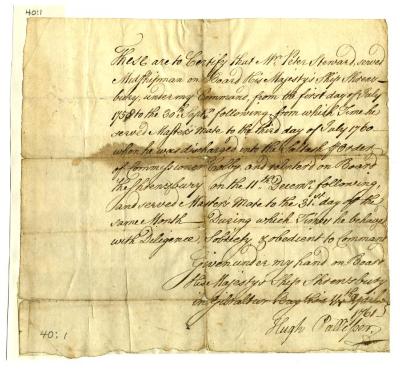 40:1
These are to Certify that Mr. Peter Steward, served
Midshipman on Board His Majesty's Ship Shrews-
bury, under my Command, from the first day of July
1758 to the 30th Septr. following, from which Time he
served Master's Mate to the third day of July 1760
when he was discharged into the by Order
of Commissioner Colby, and reenterd on Board
the Shrewsbury on the 11th. Decemr. following,
and served Master's Mate to the 31st day of the
same Month — During which Times he behaved
with Diligence Sobriety & obedient to Command
Given under my hand on Board
His Majesty's Ship Shrewsbury
in Gibraltar Bay this
1761
Hugh Palliser.
40:1